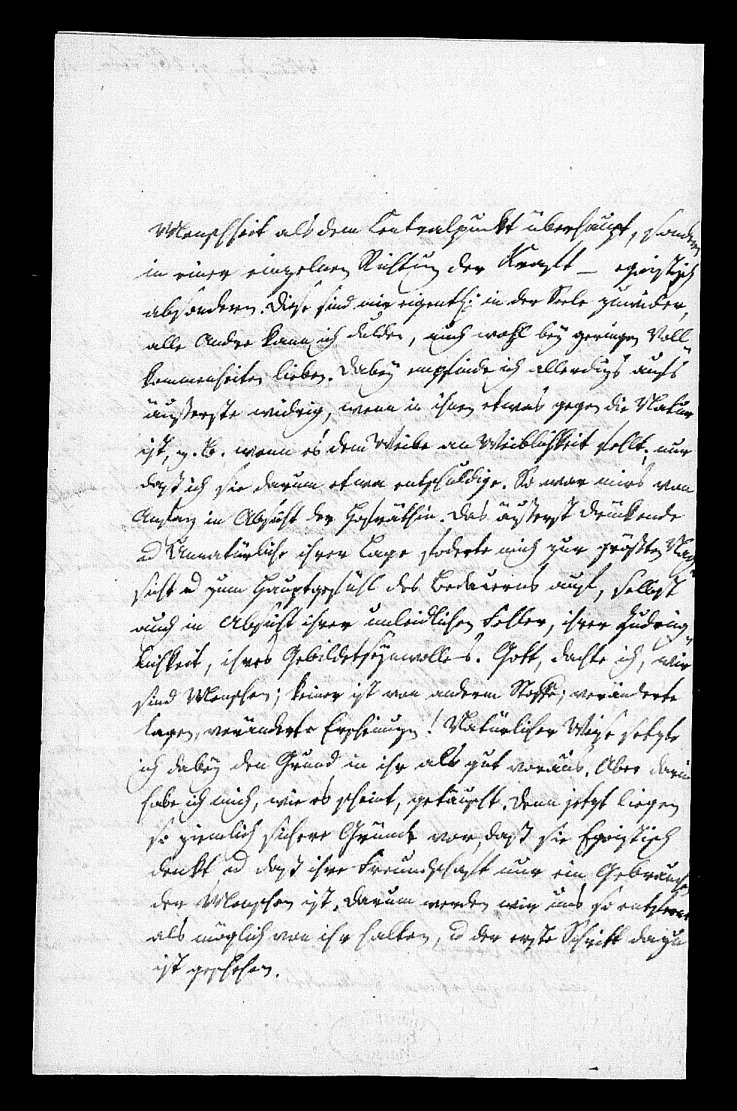 Menschheit als dem Centralpunkt überhaupt, sondern
in einer einzelnen Richtung der Kraft – egoistisch
absondern. Diese sind mir eigentl: in der Seele zuwider,
alle Andre kann ich dulden, auch wohl bey geringen Voll-
kommenheiten lieben. Dabey empfinde ich allerdings aufs
äußerste widrig, wenn in ihnen etwas gegen die Natur
ist, z. B. wenn es dem Weibe an Weiblichkeit fehlt; nur
daß ich sie darum etwa entschuldige. So war mirs von
Anfang in Absicht der Hofräthin. Das äußerst Drückende
u Unnatürliche ihrer Lage foderte mich zur größten Nach-
sicht u zum Hauptgefühl des Bedauerns auf, selbst
auch in Absicht ihrer unleidlichen Fehler, ihrer Zudring-
lichkeit, ihres Gebildetseynwollens. Gott, dachte ich, wir
sind Menschen; keiner ist von anderm Stoffe; veränderte
Lagen, veränderte Erscheinungen! Natürlicher Weise setzte
ich dabey den Grund in ihr als gut voraus. Aber darin
habe ich mich, wie es scheint, getäuscht. Denn jetzt liegen
so ziemlich sichere Gründe vor, daß sie Egoistisch
denkt u daß ihre Freundschaft nur ein Gebrauch
der Menschen ist. Darum werden wir uns so entfernt
als möglich von ihr halten, u der erste Schritt dazu
ist geschehen.